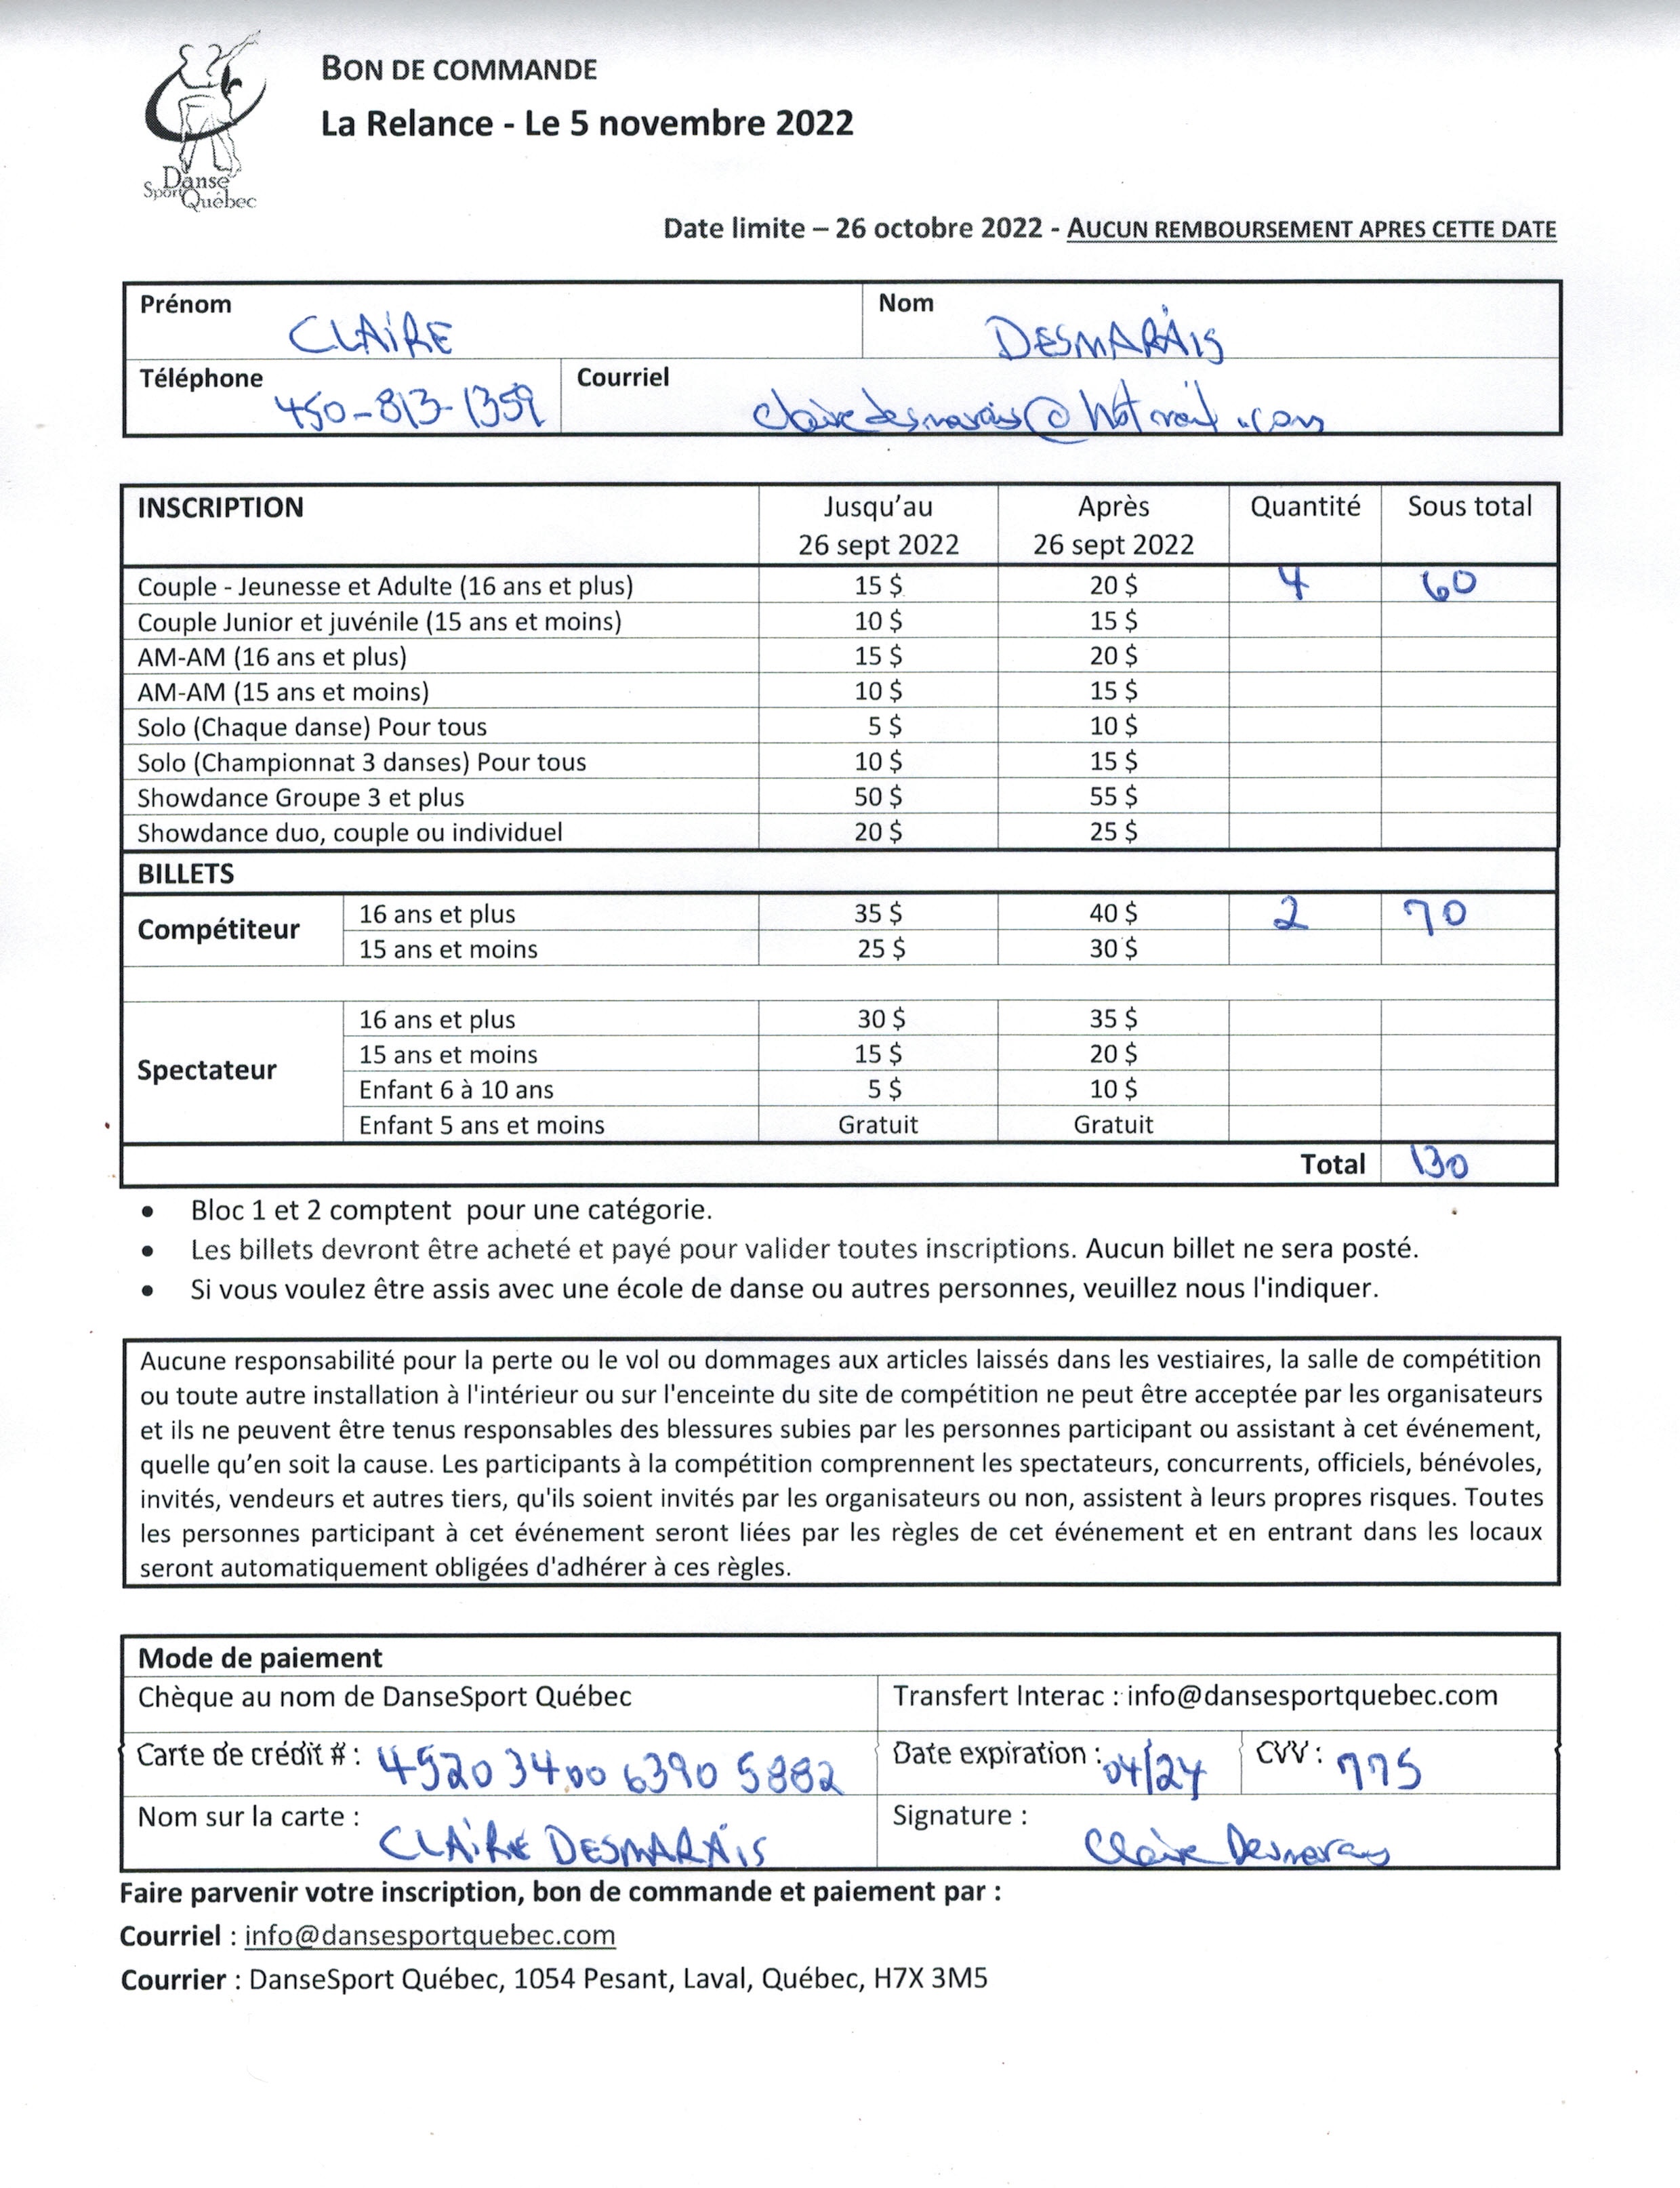 Danse
Sport Québec
BON DE COMMANDE
La Relance - Le 5 novembre 2022
Date limite – 26 octobre 2022 - AUCUN REMBOURSEMENT APRES CETTE DATE
Prénom CLAIRE Nom DESMARAIS
Téléphone 450-813-1359 Courriel clairedesmarais@hotmail.com
INSCRIPTION Jusqu’au 26 sept 2022 Après 26 sept 2022 Quantité Sous total
Couple - Jeunesse et Adulte (16 ans et plus) 15 $ 20 $ 4 60
Couple Junior et juvénile (15 ans et moins) 10 $ 15 $
AM-AM (16 ans et plus) 15 $ 20 $
AM-AM (15 ans et moins) 10 $ 15 $
Solo (Chaque danse) Pour tous 5 $ 10 $
Solo (Championnat 3 danses) Pour tous 10 $ 15 $
Showdance Groupe 3 et plus 50 $ 55 $
Showdance duo, couple ou individuel 20 $ 25 $
BILLETS
Compétiteur 16 ans et plus 35 $ 40 $ 2 70
15 ans et moins 25 $ 30 $
Spectateur 16 ans et plus 30 $ 35 $
15 ans et moins 15 $ 20 $
Enfant 6 à 10 ans 5 $ 10 $
Enfant 5 ans et moins Gratuit Gratuit
Total 130
• Bloc 1 et 2 comptent pour une catégorie.
• Les billets devront être acheté et payé pour valider toutes inscriptions. Aucun billet ne sera posté.
• Si vous voulez être assis avec une école de danse ou autres personnes, veuillez nous l'indiquer.
Aucune responsabilité pour la perte ou le vol ou dommages aux articles laissés dans les vestiaires, la salle de compétition
ou toute autre installation à l'intérieur ou sur l'enceinte du site de compétition ne peut être acceptée par les organisateurs
et ils ne peuvent être tenus responsables des blessures subies par les personnes participant ou assistant à cet événement,
quelle qu’en soit la cause. Les participants à la compétition comprennent les spectateurs, concurrents, officiels, bénévoles,
invités, vendeurs et autres tiers, qu'ils soient invités par les organisateurs ou non, assistent à leurs propres risques. Toutes
les personnes participant à cet événement seront liées par les règles de cet événement et en entrant dans les locaux
seront automatiquement obligées d'adhérer à ces règles.
Mode de paiement
Chèque au nom de DanseSport Québec Transfert Interac : info@dansesportquebec.com
Carte de crédit # : [omitted] Date expiration : 04/24 CVV : [omitted]
Nom sur la carte : CLAIRE DESMARAIS Signature : Claire Desmarais
Faire parvenir votre inscription, bon de commande et paiement par :
Courriel : info@dansesportquebec.com
Courrier : DanseSport Québec, 1054 Pesant, Laval, Québec, H7X 3M5